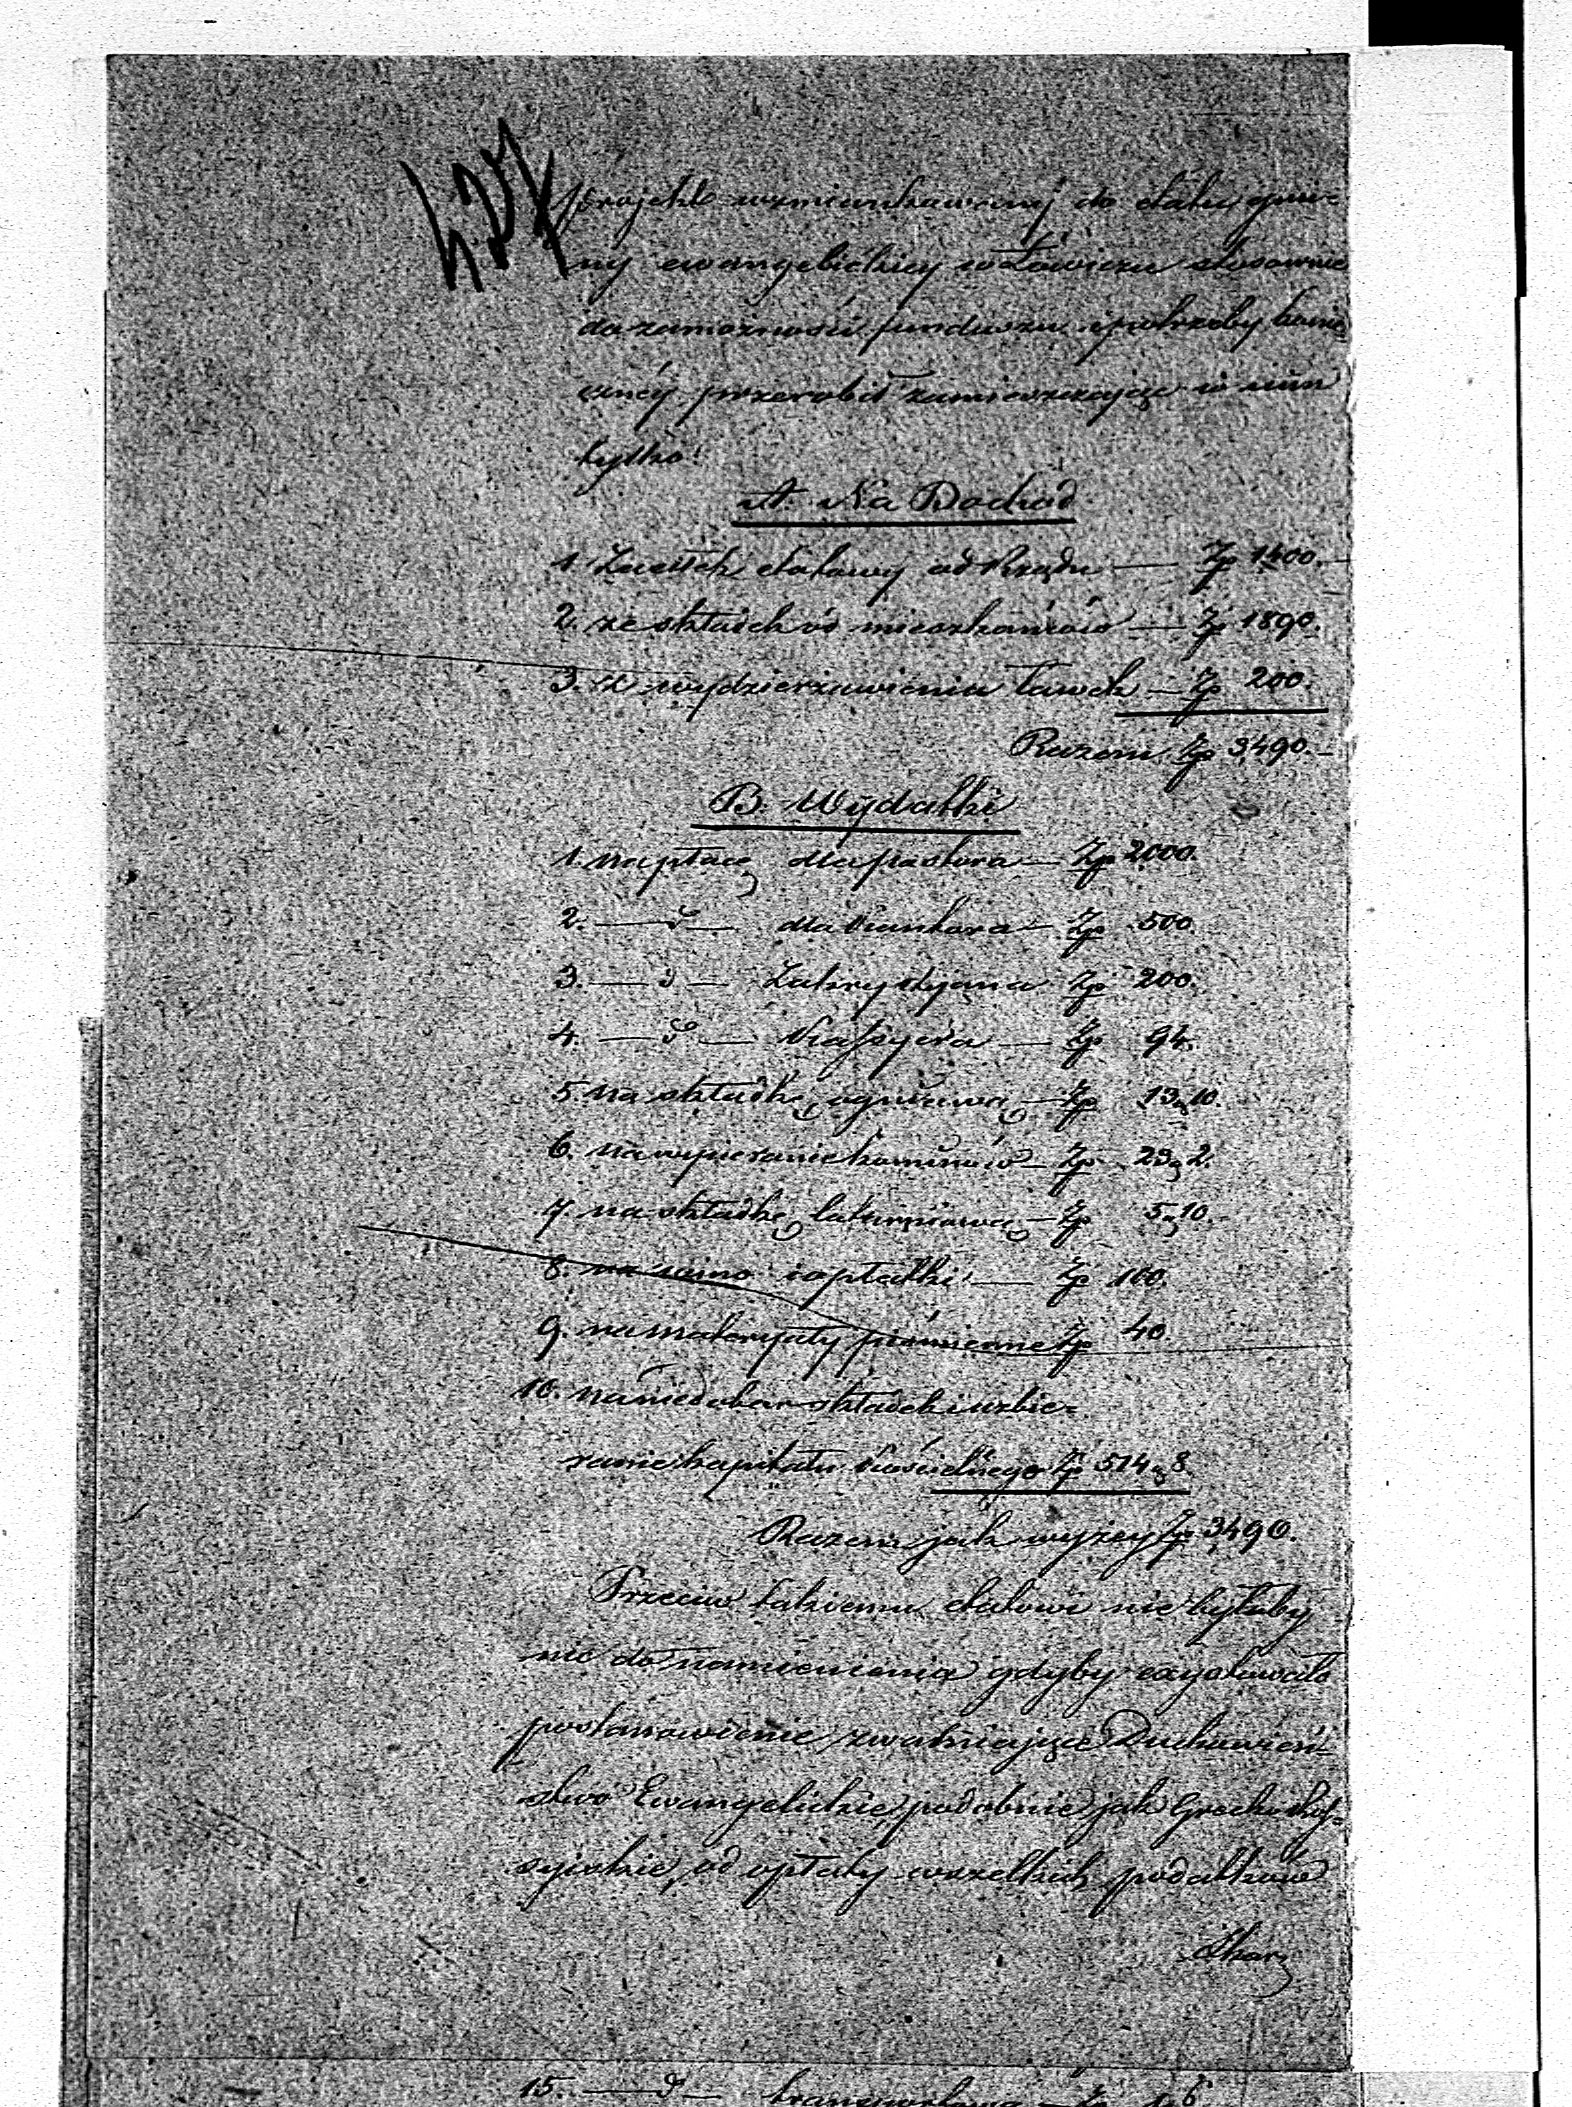 projekt wzmiunkowanej do etatu gmi-
ny ewangelickiey w Łowiczu stosownie
do zamożności funduszu i potrzeby konie
czney przerobił zamieszczając w nim
tylko:
A. Na Dochód
1. Zasiłek etatowy od Rządu — Zp 1400.—
2. ze składek od mieszkańców — Zp 1890.
3. z wydzierżawienia ławek — Zp 200.
Razem Zp 3,490.—
B. Wydatki
1. na płacę dla pastora — Zp 2000.
2. — d — dla Kantora — Zp 500.
3. — d — Zakrystyana Zp 200.
4. — d — Kassyera — Zp 94.
5. na składkę ogniową — Zp 13 g 10.
6. na wycieranie kominów — Zp 23 g 2.
7. na składkę latarniową — Zp 5 g 10.
8. na wino i opłatki — Zp 100.
9. na materyały piśmienne Zp 40.
10. na niedobor składek i uzbie-
ranie kapitału kościelnego Zp 514 g 8
Razem jak wyżey Zp 3,490.
Przeciw takiemu etatowi nie byłoby
nic do namienienia gdyby exystowało
postanowienie zwalniające Duchowień-
stwo Ewangelickie, podobnie jak Grecko Ros-
syiskie, od opłaty wszelkich podatków
Skar
15. — d —